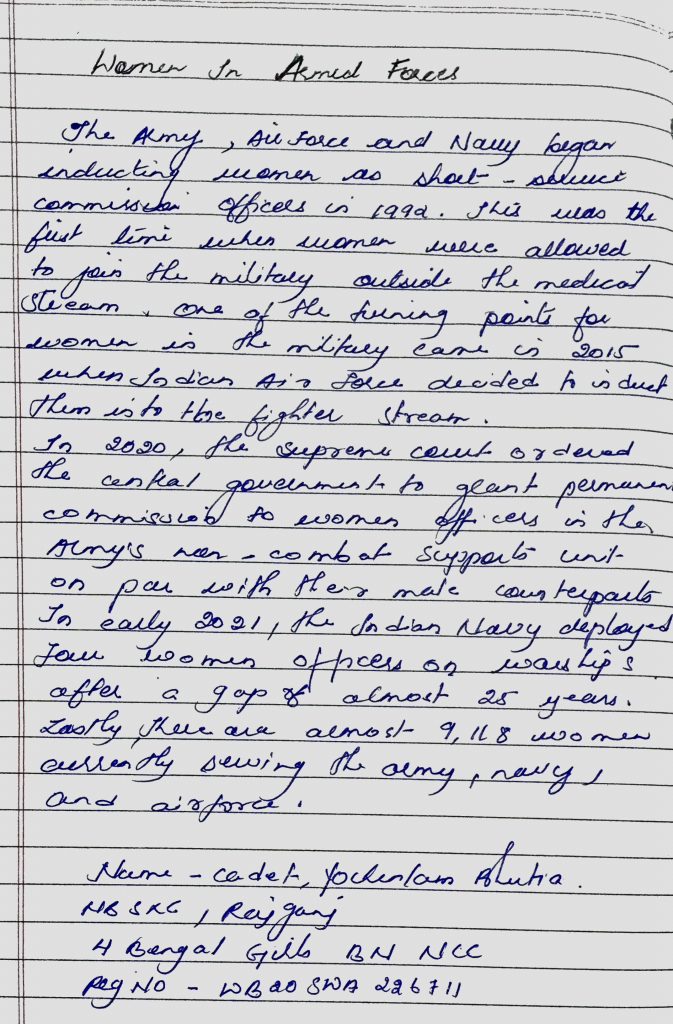 Women In Armed Forces
The Army, Air Force and Navy began
inducting women as short-service
commission officers in 1992. This was the
first time when women were allowed
to join the military outside the medical
stream. one of the turning points for
women in the military came in 2015
when Indian Air Force decided to induct
them into the fighter stream.
In 2020, the supreme court ordered
the central government to grant permanent
commission to women officers in the
Army's non-combat supports unit
on par with their male counterparts
In early 2021, the Indian Navy deployed
four women officers on warships
after a gap of almost 25 years.
Lastly, there are almost 9,118 women
currently serving the army, navy,
and airforce.
Name - cadet, Bhutia.
Rajganj
4 Bengal Girls BN NCC
Reg NO - WB20SWA226711